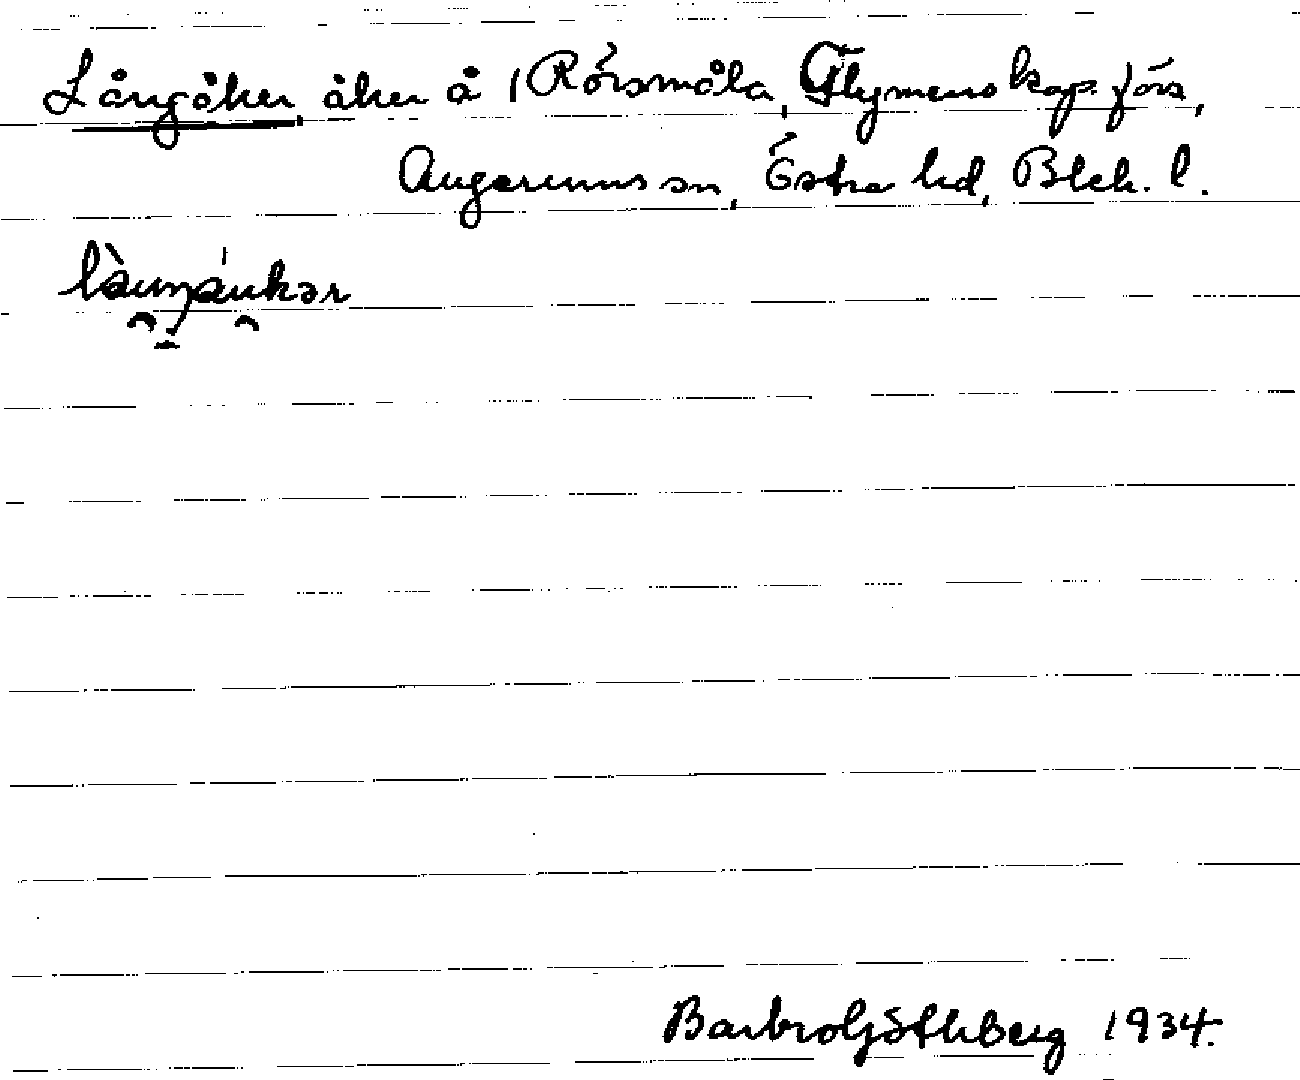 Långåker, åker å 1 Rörsmåla, Flymens kap. förs,
Augerums sn, Östra hd, Blek. l.
Barbro Göthberg 1934.